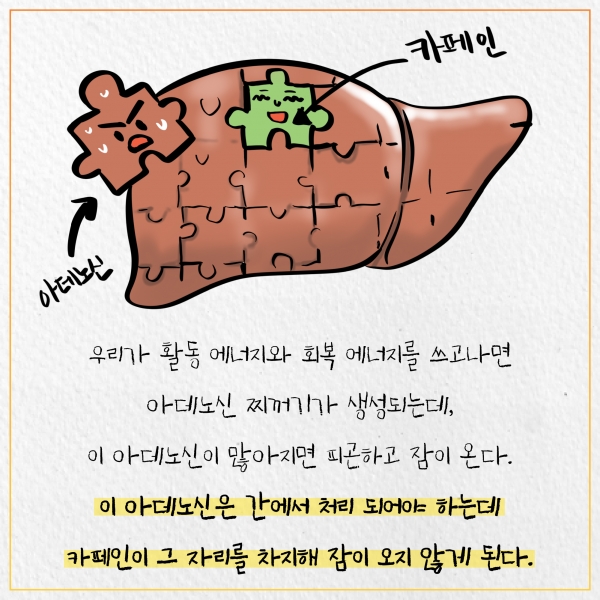 카페인
아데노신
우리가 활동 에너지와 회복 에너지를 쓰고나면
아데노신 찌꺼기가 생성되는데,
이 아데노신이 많아지면 피곤하고 잠이 온다.
이 아데노신은 간에서 처리 되어야 하는데
카페인이 그 자리를 차지해 잠이 오지 않게 된다.